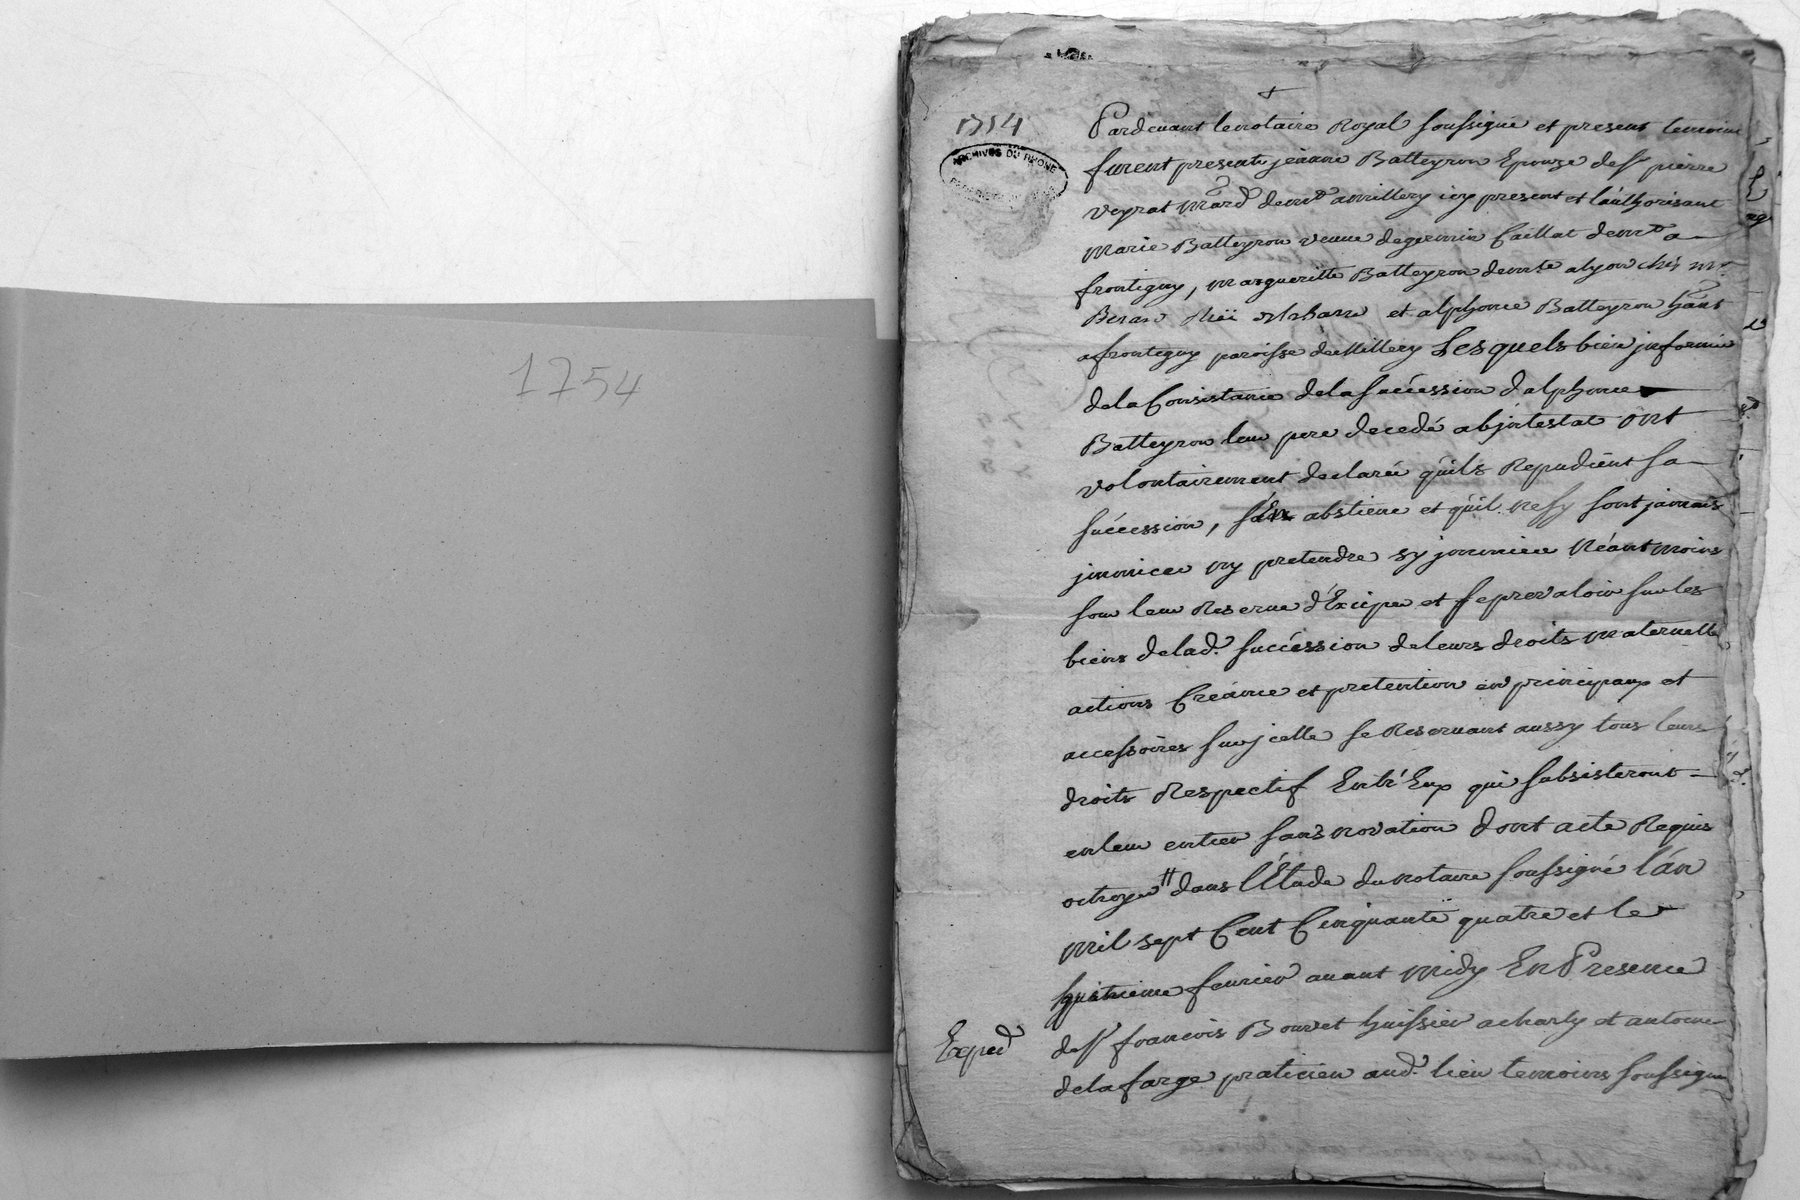 1754
1754
ARCHIVES DU RHONE
Pardevant le notaire Royal soussigné et present temoins
furent presents jeanne Batteyron Epouze de Sr pierre
veyrat mard demt a millery icy present et l'authorisant
marie Batteyron veuve de germain Caillat demt a
frontigny, margueritte Batteyron demte a lyon chés mr
et alphonce Batteyron habt
a frontigny paroisse de Millery Lesquels bien jnformés
de la Consistance de la succéssion d'alphonce
Batteyron leur pere decedé abjntestat ont
volontairement declaré qu'ils Repudient sa
succéssion, s'en abstiene et qu'il ne s'y sont jamais
jmmiceé ny pretendre sy jmmicer Néantmoins
sous leur Reserve d'Exciper et se prevaloir sur les
biens de lad. succéssion de leurs droits maternels
actions Créance et pretention en principaux et
accessoires sur jcelle se Reservant aussy tous leurs
droits Respectif Entr'Eux qui subsisteront
en leur entier sans novation dont acte Requis
octroyé dans l'Étude du notaire soussigné l'an
mil sept Cent Cinquante quatre et le
huitieme fevrier avant midy En Presence
de Sr francois Bouvet huissier a charly et antoine
delafarge praticien aud. lieu temoins soussignés
Exped